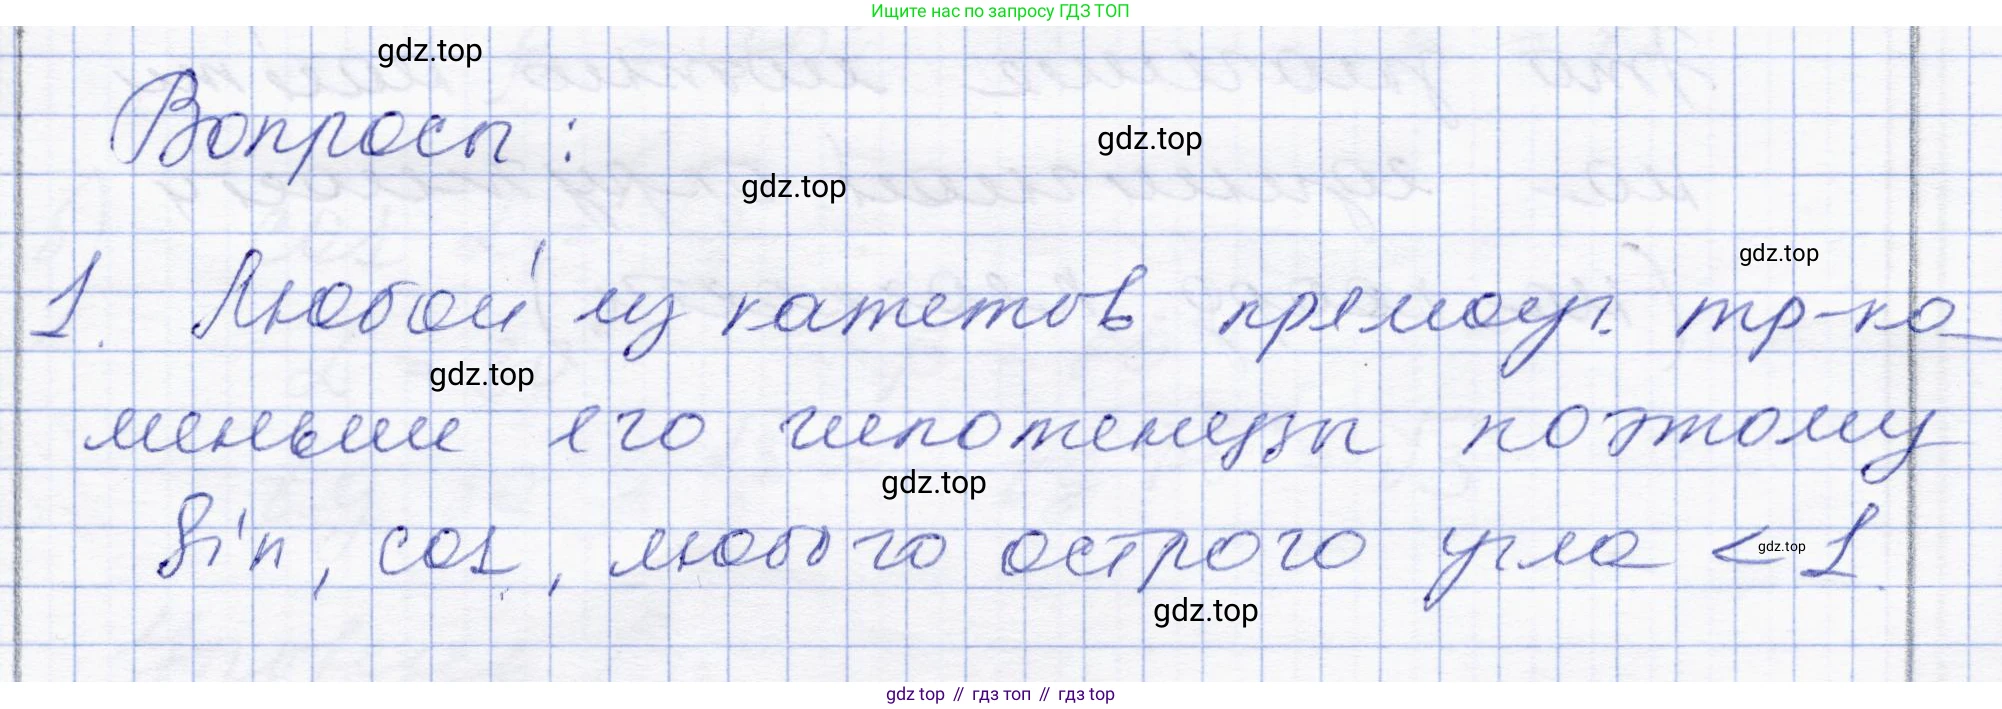 Ищите нас по запросу ГДЗ ТОП
gdz.top
Вопросы:
gdz.top
gdz.top
gdz.top
1. Любой из катетов прямоуг. тр-ка
gdz.top
меньше его гипотенузы поэтому
gdz.top
sin, cos, любого острого угла < 1.
gdz.top
gdz.top
gdz top // гдз топ // gdz top